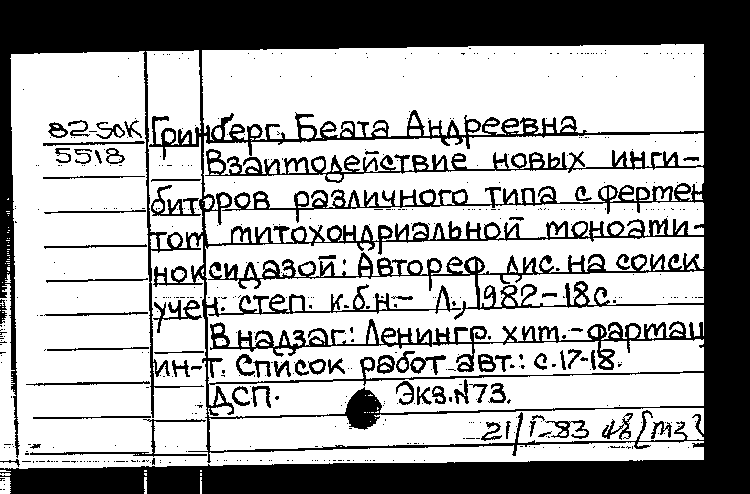 82-5ок Гринберг, Беата Андреевна.
5518 Взаимодействие новых инги-
биторов различного типа с фермен
том митохондриальной моноами-
ноксидазой: Автореф. дис. на соиск
учен. степ. к.б.н.- Л., 1982.-18с.
В надзаг.: Ленингр. хим.-фармац
ин-т. Список работ авт.: с.17-18.
ДСП. Экз.№73.
21/I-83